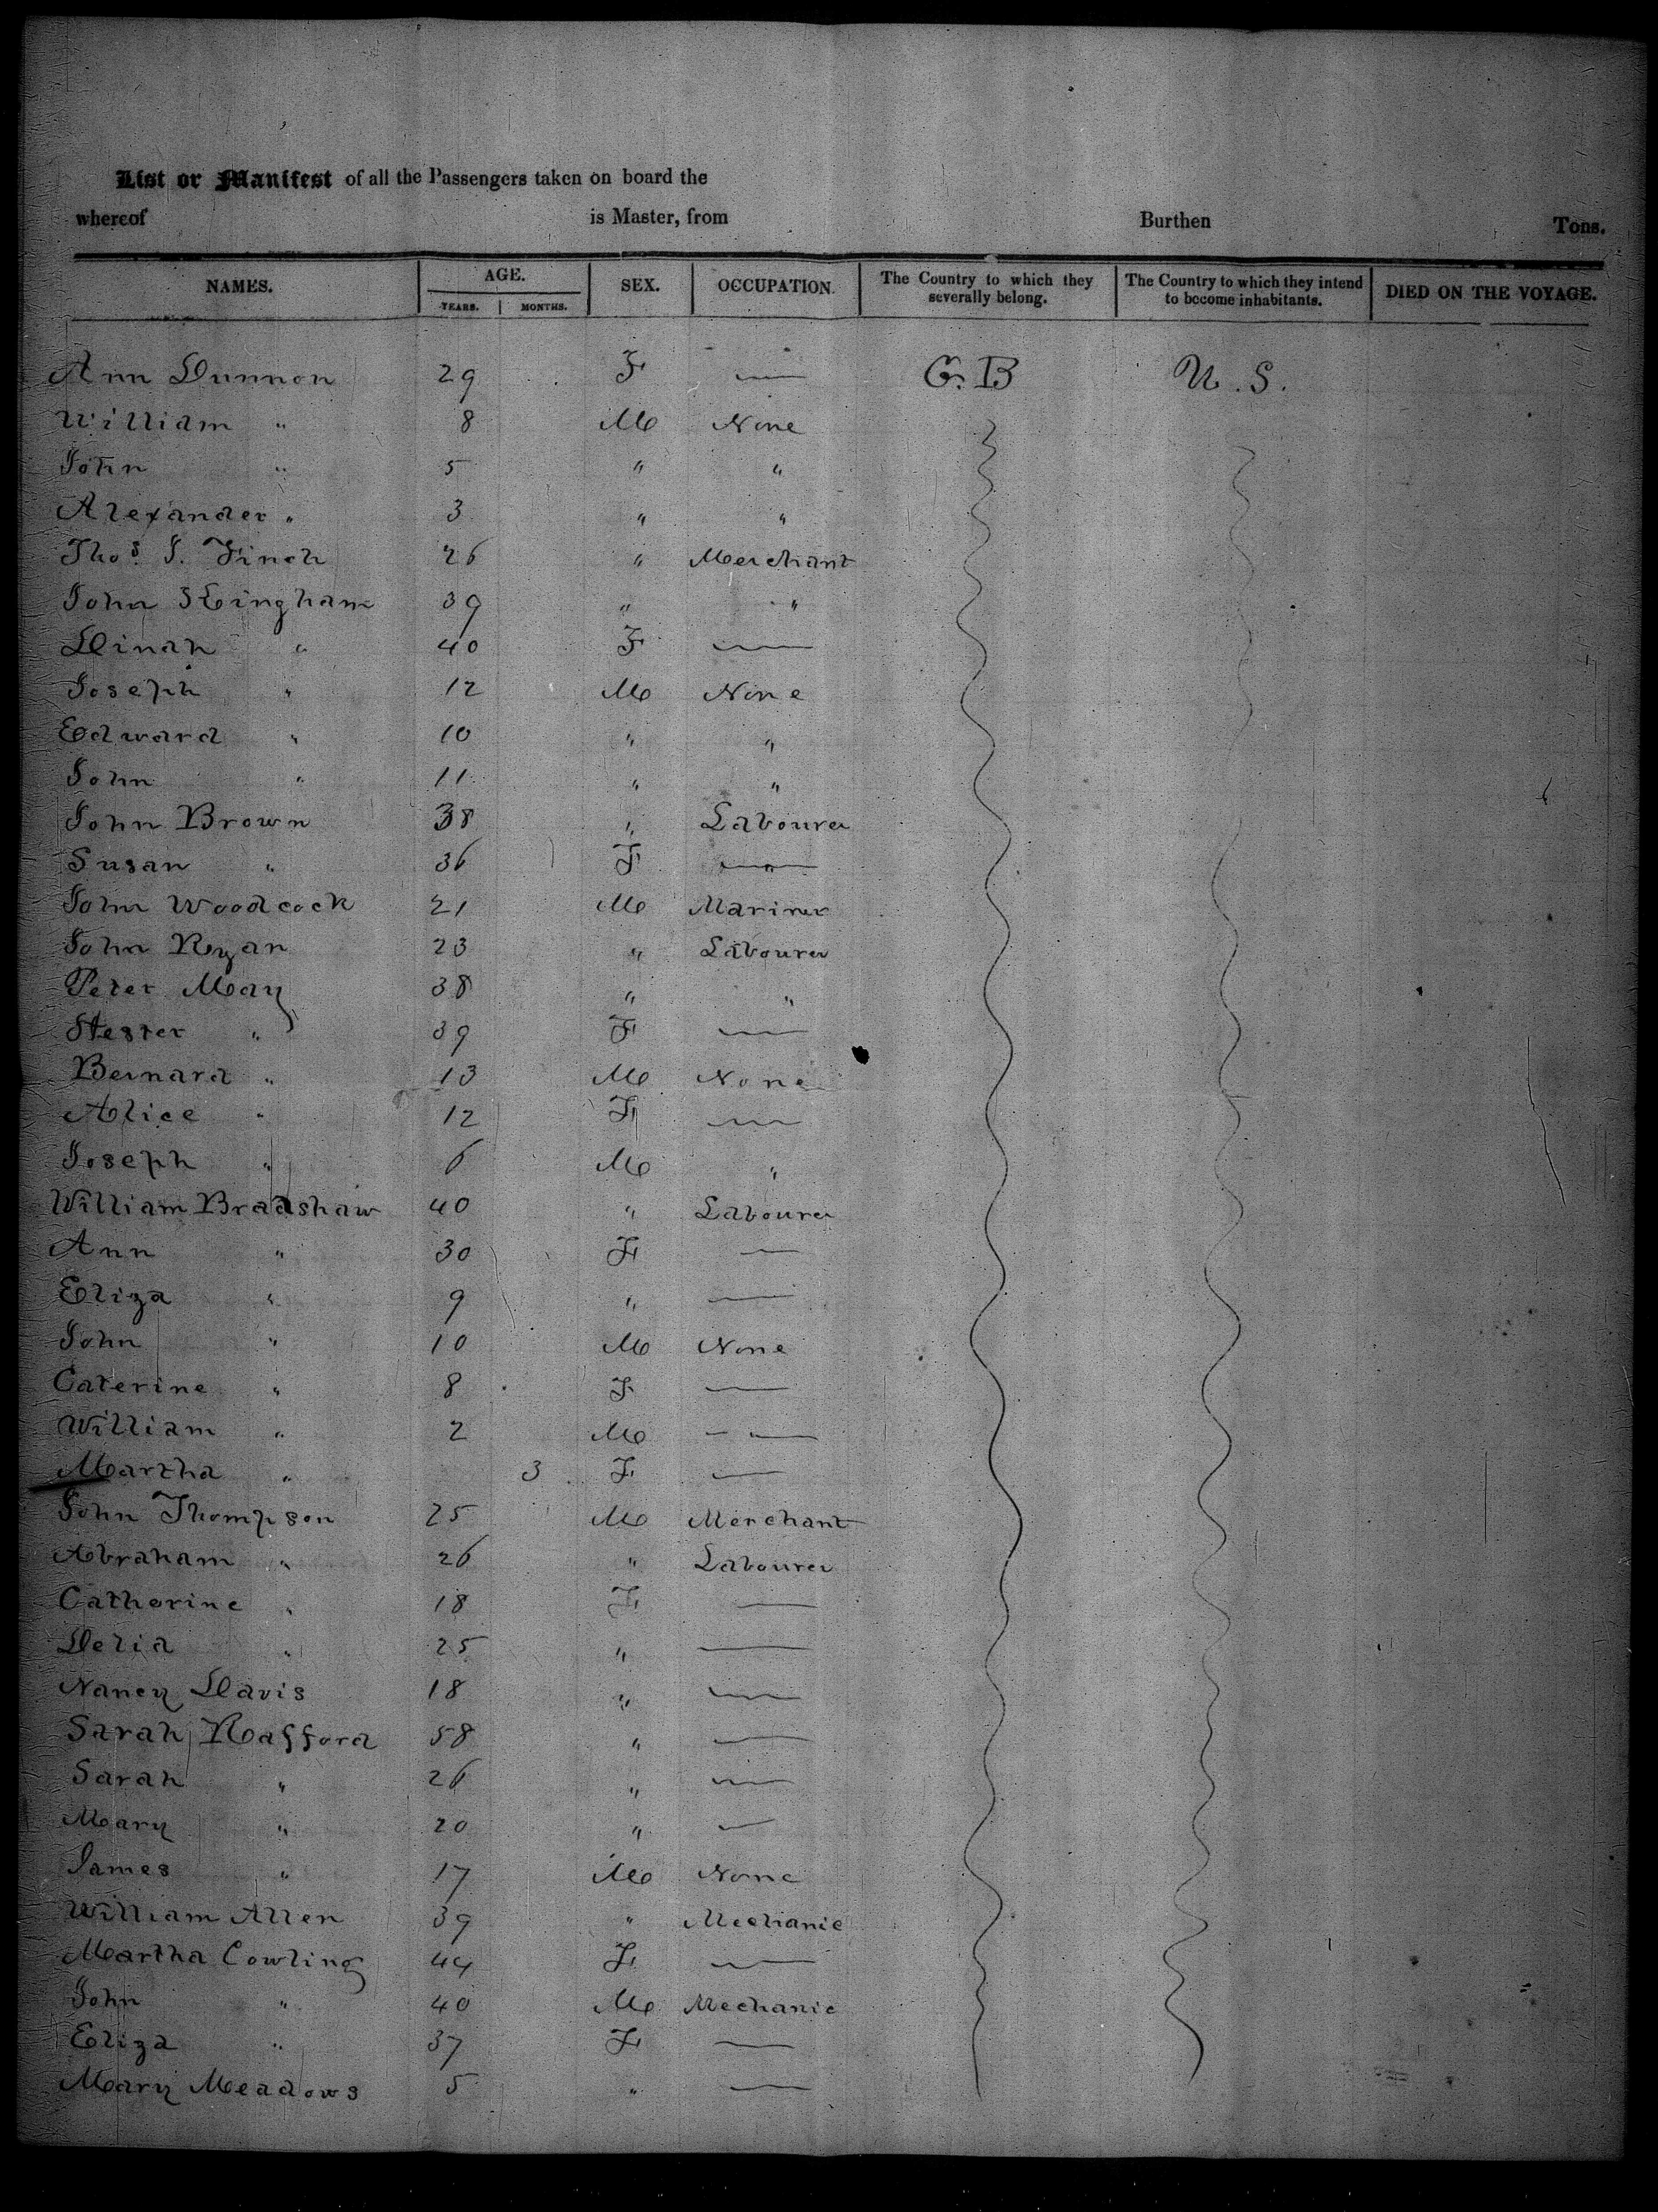 List or Manifest of all the Passengers taken on board the
whereof is Master, from Burthen Tons.
NAMES. AGE. SEX. OCCUPATION. The Country to which they severally belong. The Country to which they intend to become inhabitants. DIED ON THE VOYAGE.
YEARS. MONTHS.
Ann Dunnon 29 F — G. B U. S.
William " 8 M None
John " 5 " "
Alexander " 3 " "
Thos. J. Finch 26 " Merchant
John Kingham 39 " "
Dinah " 40 F —
Joseph " 12 M None
Edward " 10 " "
John " 11 " "
John Brown 38 " Labourer
Susan " 36 F —"—
John Woodcock 21 M Mariner
John Ryan 23 " Labourer
Peter May 38 " "
Hester " 39 F —
Bernard " 13 M None
Alice " 12 F —
Joseph " 6 M "
William Bradshaw 40 " Labourer
Ann " 30 F —
Eliza " 9 " —
John " 10 M None
Caterine " 8 F —
William " 2 M — —
Martha " 3 F —
John Thompson 25 M Merchant
Abraham " 26 " Labourer
Catherine " 18 F —
Delia " 25 " —
Nancy Davis 18 " —
Sarah Rafford 58 " —
Sarah " 26 " —
Mary " 20 " —
James " 17 M None
William Allen 39 " Mechanic
Martha Cowling 44 F —
John " 40 M Mechanic
Eliza " 37 F —
Mary Meadows 5 " —